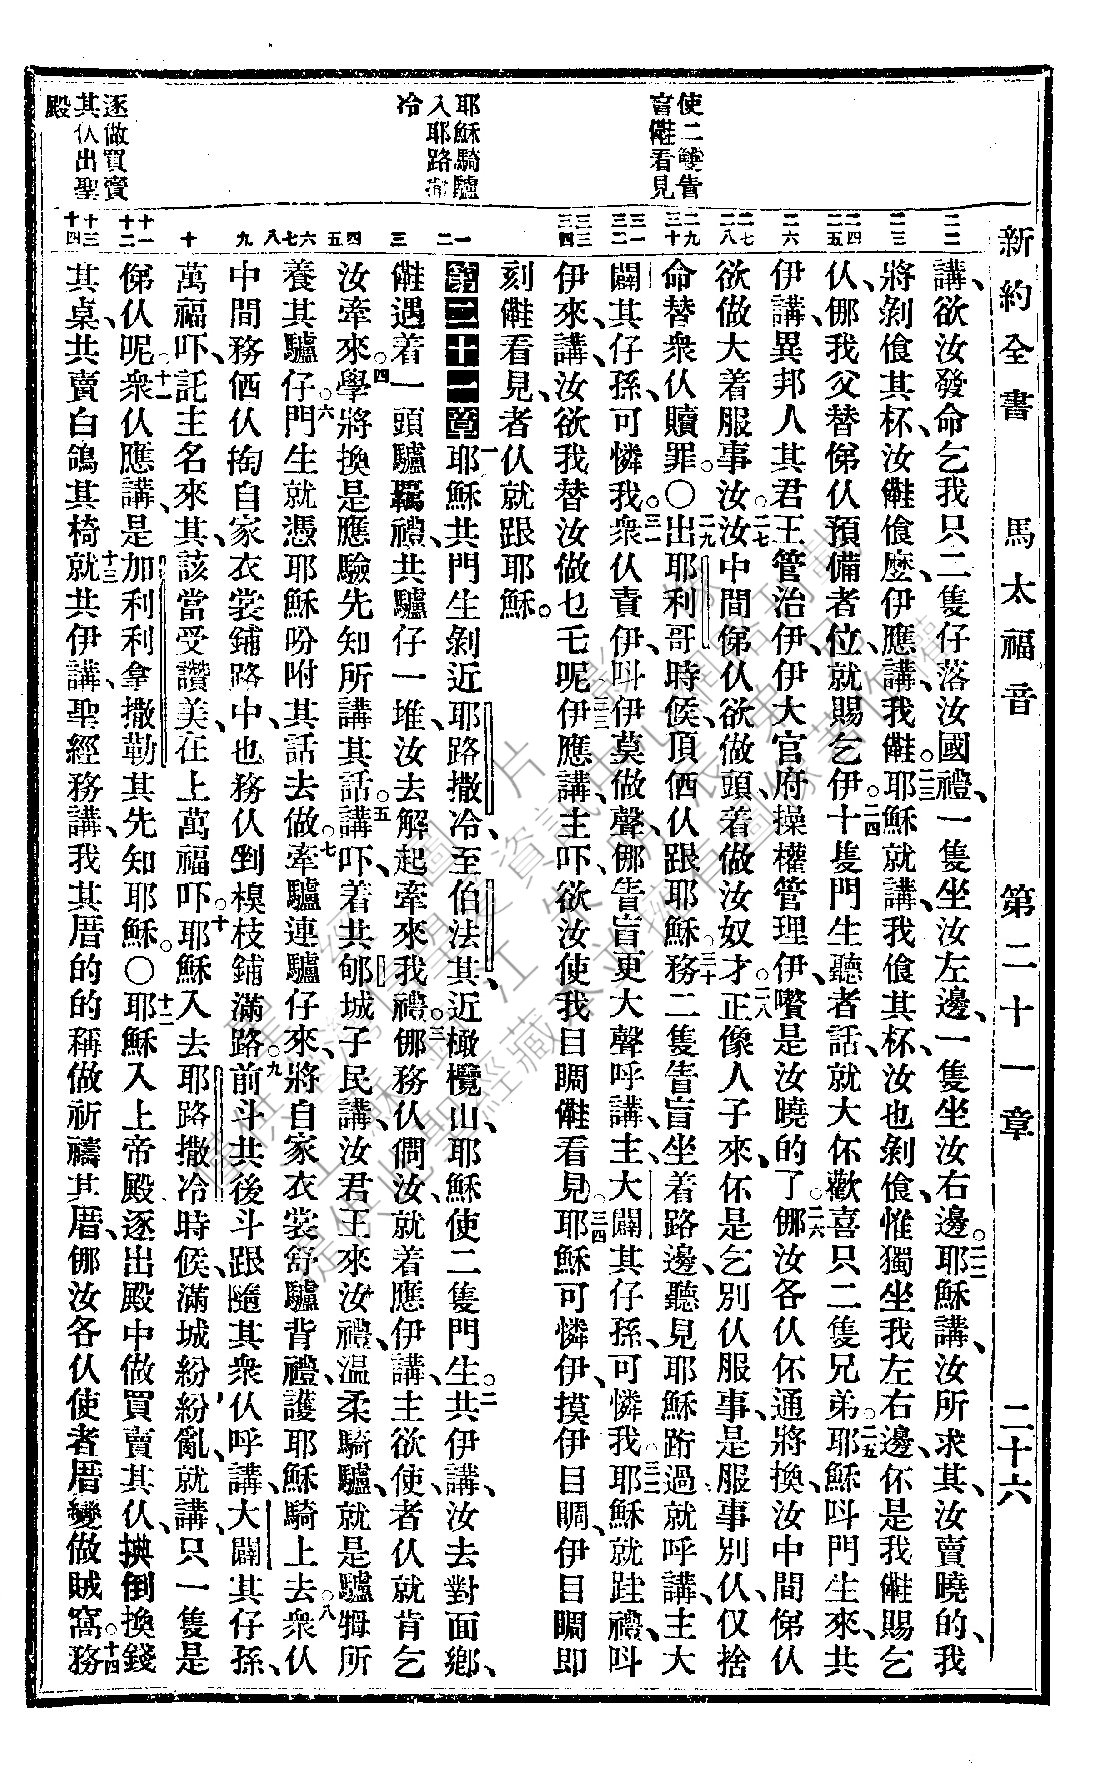 新約全書 馬太福音 第二十一章 二十六
使二雙瞽
盲㑚看見
耶穌騎驢
入耶路撒
冷
逐做買賣
其仈出聖
殿
講、欲汝發命乞我只二隻仔落汝國禮、一隻坐汝左邊、一隻坐汝右邊。二二耶穌講、汝所求其、汝賣曉的、我
將剝飧其杯、汝㑚飧麽、伊應講、我㑚。二三耶穌就講、我飧其杯、汝也剝飧、惟獨坐我左右邊、伓是我㑚賜乞
仈、㑚我父替俤仈預備者位、就賜乞伊。二四十隻門生聽者話、就大伓歡喜只二隻兄弟。二五耶穌呌門生來、共
伊講、異邦人其君王管治伊、伊大官府操權管理伊、嚽是汝曉的了。二六㑚汝各仈伓通將換、汝中間俤仈
欲做大着服事汝。二七汝中間俤仈欲做頭、着做汝奴才。二八正像人子來、伓是乞別仈服事、是服事別仈、仅捨
命替衆仈贖罪。〇二九出耶利哥時候、頂㒲仈跟耶穌。三十務二隻瞽盲坐着路邊、聽見耶穌跡過、就呼講、主大
闢其仔孫、可憐我。三一衆仈責伊、呌伊莫做聲、㑚瞽盲更大聲呼講、主、大闢其仔孫、可憐我。三二耶穌就跬禮、呌
伊來、講、汝欲我替汝做乜乇呢。三三伊應講、主吓、欲汝使我目睭㑚看見。三四耶穌可憐伊、摸伊目睭、伊目睭即
刻㑚看見、者仈就跟耶穌。
第二十一章 一耶穌共門生剝近耶路撒冷、至伯法其、近橄欖山、耶穌使二隻門生。二共伊講、汝去對面鄉、
㑚遇着一頭驢羈禮、共驢仔一堆、汝去解起牽來我禮。三㑚務仈倜汝、就着應伊講、主欲使、者仈就肯乞
汝牽來。四學將換是應驗先知所講其話。五講吓、着共郇城子民講、汝君王來汝禮、温柔騎驢、就是驢㹪所
養其驢仔。六門生就憑耶穌吩咐其話去做。七牽驢連驢仔來、將自家衣裳舒驢背禮、護耶穌騎上去。八衆仈
中間務㒲仈掏自家衣裳鋪路中、也務仈剉樹枝鋪滿路。九前斗共後斗跟隨其衆仈、呼講、大闢其仔孫、
萬福吓、託主名來其、該當受讚美、在上萬福吓。十耶穌入去耶路撒冷時候、滿城紛紛亂、就講、只一隻是
俤仈呢。十一衆仈應講、是加利利拿撒勒其先知耶穌。〇十二耶穌入上帝殿、逐出殿中做買賣其仈、㧣倒換錢
其桌、共賣白鴿其椅。十三就共伊講、聖經務講、我其厝的的稱做祈禱其厝、㑚汝各仈使者厝變做賊窩。十四務